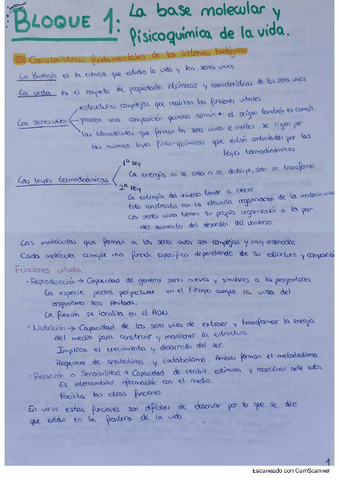 BLOQUE 1: La base molecular y
fisicoquímica de la vida.
Características fundamentales de los sistemas biológicos
La Biología es la ciencia que estudia la vida y los seres vivos
La vida es el conjunto de propiedades intrínsecas y características de los seres vivos
estructuras complejas que realizan las funciones vitales
Los seres vivos poseen una composición química común el origen también es común.
los bioelementos que forman los seres vivos e inertes se rigen por
las mismas leyes físico-químicas que están controladas por las
leyes termodinámicas
1ª ley
La energía ni se crea ni se destruye, solo se transforma
Las leyes termodinámicas
2ª ley
La entropía del universo tiende a crecer.
Esto contrasta con la elevada organización de la materia viva
Los seres vivos tienen su propia organización a la par
del aumento del desorden del universo.
Las moléculas que forman a los seres vivos son complejas y muy ordenadas
Cada molécula cumple una función específica dependiendo de su estructura y composición
Funciones vitales
· Reproducción → Capacidad de generar seres nuevos y similares a los progenitores
La especie podrá perpetuar en el tiempo aunque la vida del
organismo sea limitada.
La función se localiza en el ADN
· Nutrición → Capacidad de los seres vivos de extraer y transformar la energía
del medio para construir y mantener la estructura.
Implica el crecimiento y desarrollo del ser.
Requiere de anabolismo y catabolismo. Ambos forman el metabolismo
· Relación o Sensibilidad → Capacidad de recibir estímulos y reaccionar ante ellos
Es intercambiar información con el medio.
Facilita las otras funciones
En virus estas funciones son difíciles de observar por lo que se dice
que están en la frontera de la vida.
1
Escaneado con CamScanner